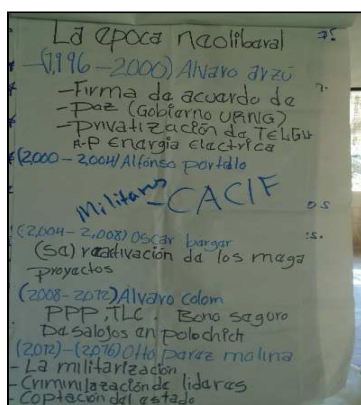 La epoca neoliberal
(1,996-2,000) Alvaro arzú
-Firma de acuerdo de
-paz (Gobierno URNG)
-privatización de TELGU
A-P energia electrica
(2,000-2,004) Alfonso portillo
Militares - CACIF
(2,004-2,008) Oscar bergar
(Se) reactivación de los mega
proyectos
(2008-2,012) Alvaro Colom
PPP, TLC. Bono seguro
Desalojos en polochich
(2,012)-(2,016) Otto perez molina
- La militarización
- Criminilazación de lideres
- Coptación del estado